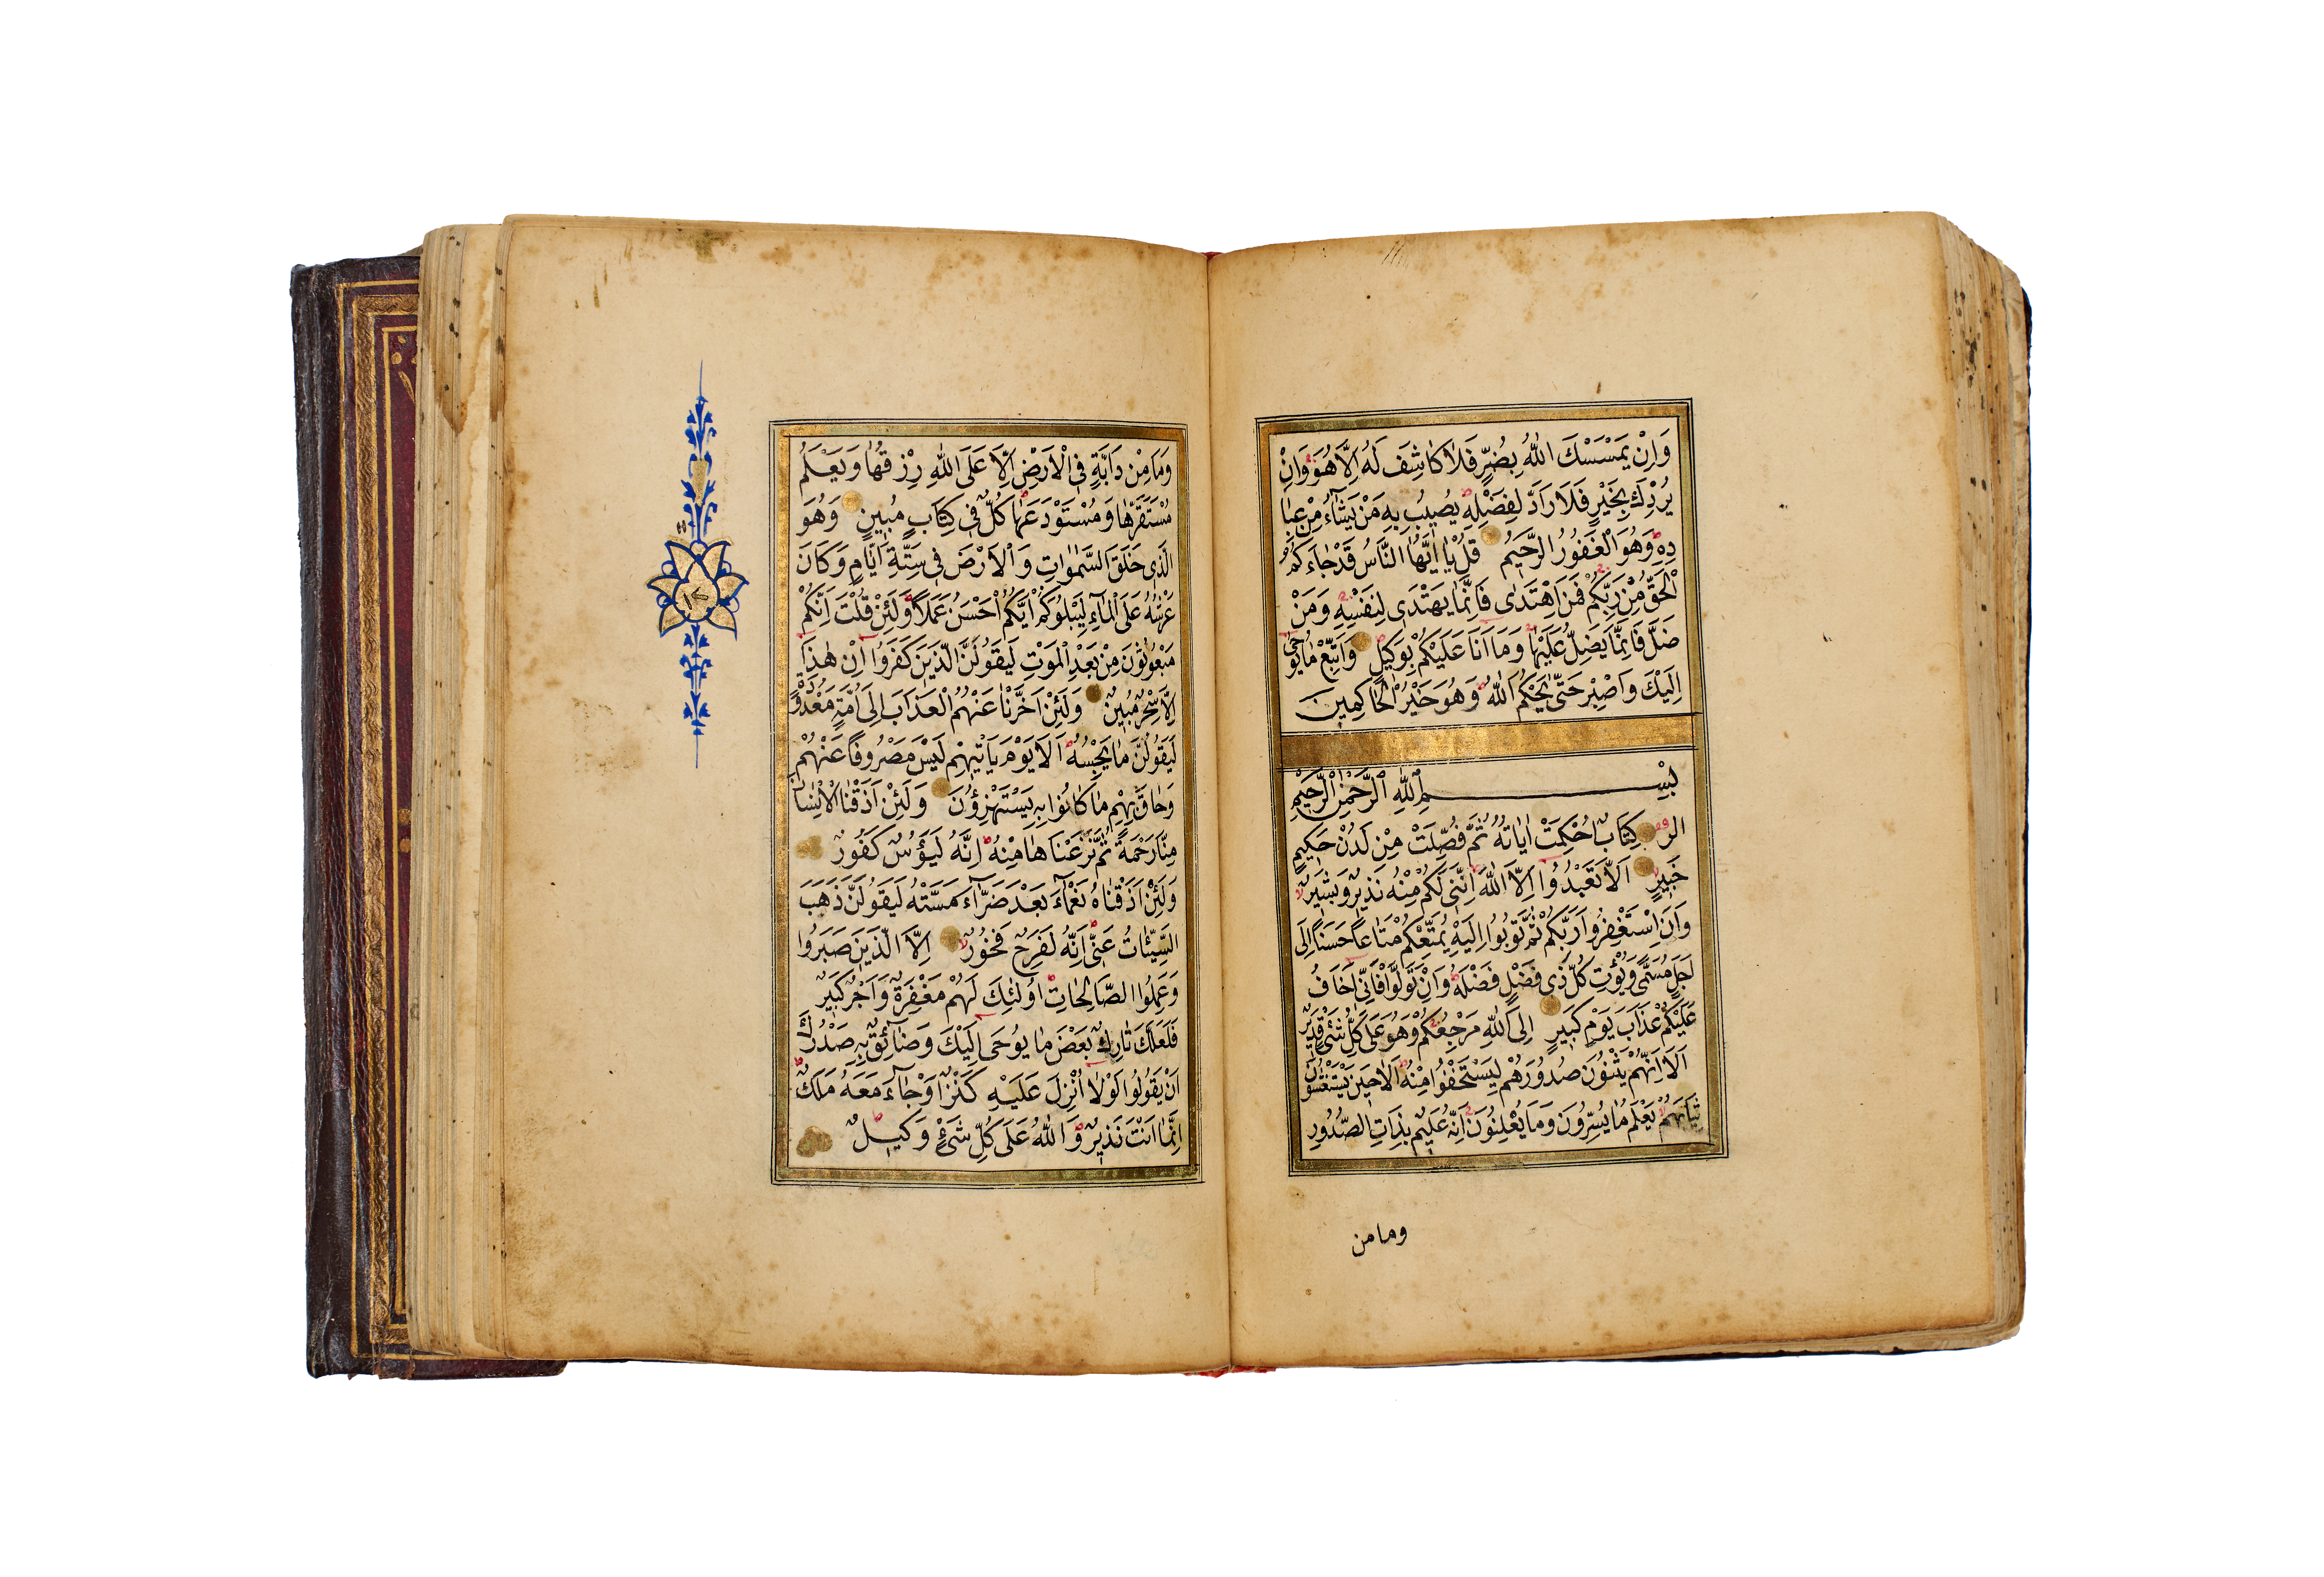 وَاِنْ يَمْسَسْكَ اللّٰهُ بِضُرٍّ فَلَا كَاشِفَ لَهُ اِلَّا هُوَ وَاِنْ
يُرِدْكَ بِخَيْرٍ فَلَا رَادَّ لِفَضْلِهِ يُصِيبُ بِهِ مَنْ يَشَاءُ مِنْ عِبَا
دِهِ وَهُوَ الْغَفُورُ الرَّحِيمُ قُلْ يَا اَيُّهَا النَّاسُ قَدْ جَاءَكُمُ
الْحَقُّ مِنْ رَبِّكُمْ فَمَنِ اهْتَدٰى فَاِنَّمَا يَهْتَدٖى لِنَفْسِهِ وَمَنْ
ضَلَّ فَاِنَّمَا يَضِلُّ عَلَيْهَا وَمَا اَنَا عَلَيْكُمْ بِوَكِيلٍ وَاتَّبِعْ مَا يُوحٰى
اِلَيْكَ وَاصْبِرْ حَتّٰى يَحْكُمَ اللّٰهُ وَهُوَ خَيْرُ الْحَاكِمِينَ
بِسْمِ اللّٰهِ الرَّحْمٰنِ الرَّحِيمِ
الر كِتَابٌ اُحْكِمَتْ اٰيَاتُهُ ثُمَّ فُصِّلَتْ مِنْ لَدُنْ حَكِيمٍ
خَبِيرٍ اَلَّا تَعْبُدُوا اِلَّا اللّٰهَ اِنَّنِى لَكُمْ مِنْهُ نَذِيرٌ وَبَشِيرٌ
وَاَنِ اسْتَغْفِرُوا رَبَّكُمْ ثُمَّ تُوبُوا اِلَيْهِ يُمَتِّعْكُمْ مَتَاعًا حَسَنًا اِلٰى
اَجَلٍ مُسَمًّى وَيُؤْتِ كُلَّ ذِى فَضْلٍ فَضْلَهُ وَاِنْ تَوَلَّوْا فَاِنِّى اَخَافُ
عَلَيْكُمْ عَذَابَ يَوْمٍ كَبِيرٍ اِلَى اللّٰهِ مَرْجِعُكُمْ وَهُوَ عَلٰى كُلِّ شَىْءٍ قَدِيرٌ
اَلَا اِنَّهُمْ يَثْنُونَ صُدُورَهُمْ لِيَسْتَخْفُوا مِنْهُ اَلَا حِينَ يَسْتَغْشُونَ
ثِيَابَهُمْ يَعْلَمُ مَا يُسِرُّونَ وَمَا يُعْلِنُونَ اِنَّهُ عَلِيمٌ بِذَاتِ الصُّدُورِ
وما من
وَمَا مِنْ دَابَّةٍ فِى الْاَرْضِ اِلَّا عَلَى اللّٰهِ رِزْقُهَا وَيَعْلَمُ
مُسْتَقَرَّهَا وَمُسْتَوْدَعَهَا كُلٌّ فِى كِتَابٍ مُبِينٍ وَهُوَ
الَّذِى خَلَقَ السَّمٰوَاتِ وَالْاَرْضَ فِى سِتَّةِ اَيَّامٍ وَكَانَ
عَرْشُهُ عَلَى الْمَاءِ لِيَبْلُوَكُمْ اَيُّكُمْ اَحْسَنُ عَمَلًا وَلَئِنْ قُلْتَ اِنَّكُمْ
مَبْعُوثُونَ مِنْ بَعْدِ الْمَوْتِ لَيَقُولَنَّ الَّذِينَ كَفَرُوا اِنْ هٰذَا
اِلَّا سِحْرٌ مُبِينٌ وَلَئِنْ اَخَّرْنَا عَنْهُمُ الْعَذَابَ اِلٰى اُمَّةٍ مَعْدُودَةٍ
لَيَقُولُنَّ مَا يَحْبِسُهُ اَلَا يَوْمَ يَاْتِيهِمْ لَيْسَ مَصْرُوفًا عَنْهُمْ
وَحَاقَ بِهِمْ مَا كَانُوا بِهِ يَسْتَهْزِؤُنَ وَلَئِنْ اَذَقْنَا الْاِنْسَانَ
مِنَّا رَحْمَةً ثُمَّ نَزَعْنَاهَا مِنْهُ اِنَّهُ لَيَؤُسٌ كَفُورٌ
وَلَئِنْ اَذَقْنَاهُ نَعْمَاءَ بَعْدَ ضَرَّاءَ مَسَّتْهُ لَيَقُولَنَّ ذَهَبَ
السَّيِّئَاتُ عَنِّى اِنَّهُ لَفَرِحٌ فَخُورٌ اِلَّا الَّذِينَ صَبَرُوا
وَعَمِلُوا الصَّالِحَاتِ اُولٰئِكَ لَهُمْ مَغْفِرَةٌ وَاَجْرٌ كَبِيرٌ
فَلَعَلَّكَ تَارِكٌ بَعْضَ مَا يُوحٰى اِلَيْكَ وَضَائِقٌ بِهِ صَدْرُكَ
اَنْ يَقُولُوا لَوْلَا اُنْزِلَ عَلَيْهِ كَنْزٌ اَوْ جَاءَ مَعَهُ مَلَكٌ
اِنَّمَا اَنْتَ نَذِيرٌ وَاللّٰهُ عَلٰى كُلِّ شَىْءٍ وَكِيلٌ